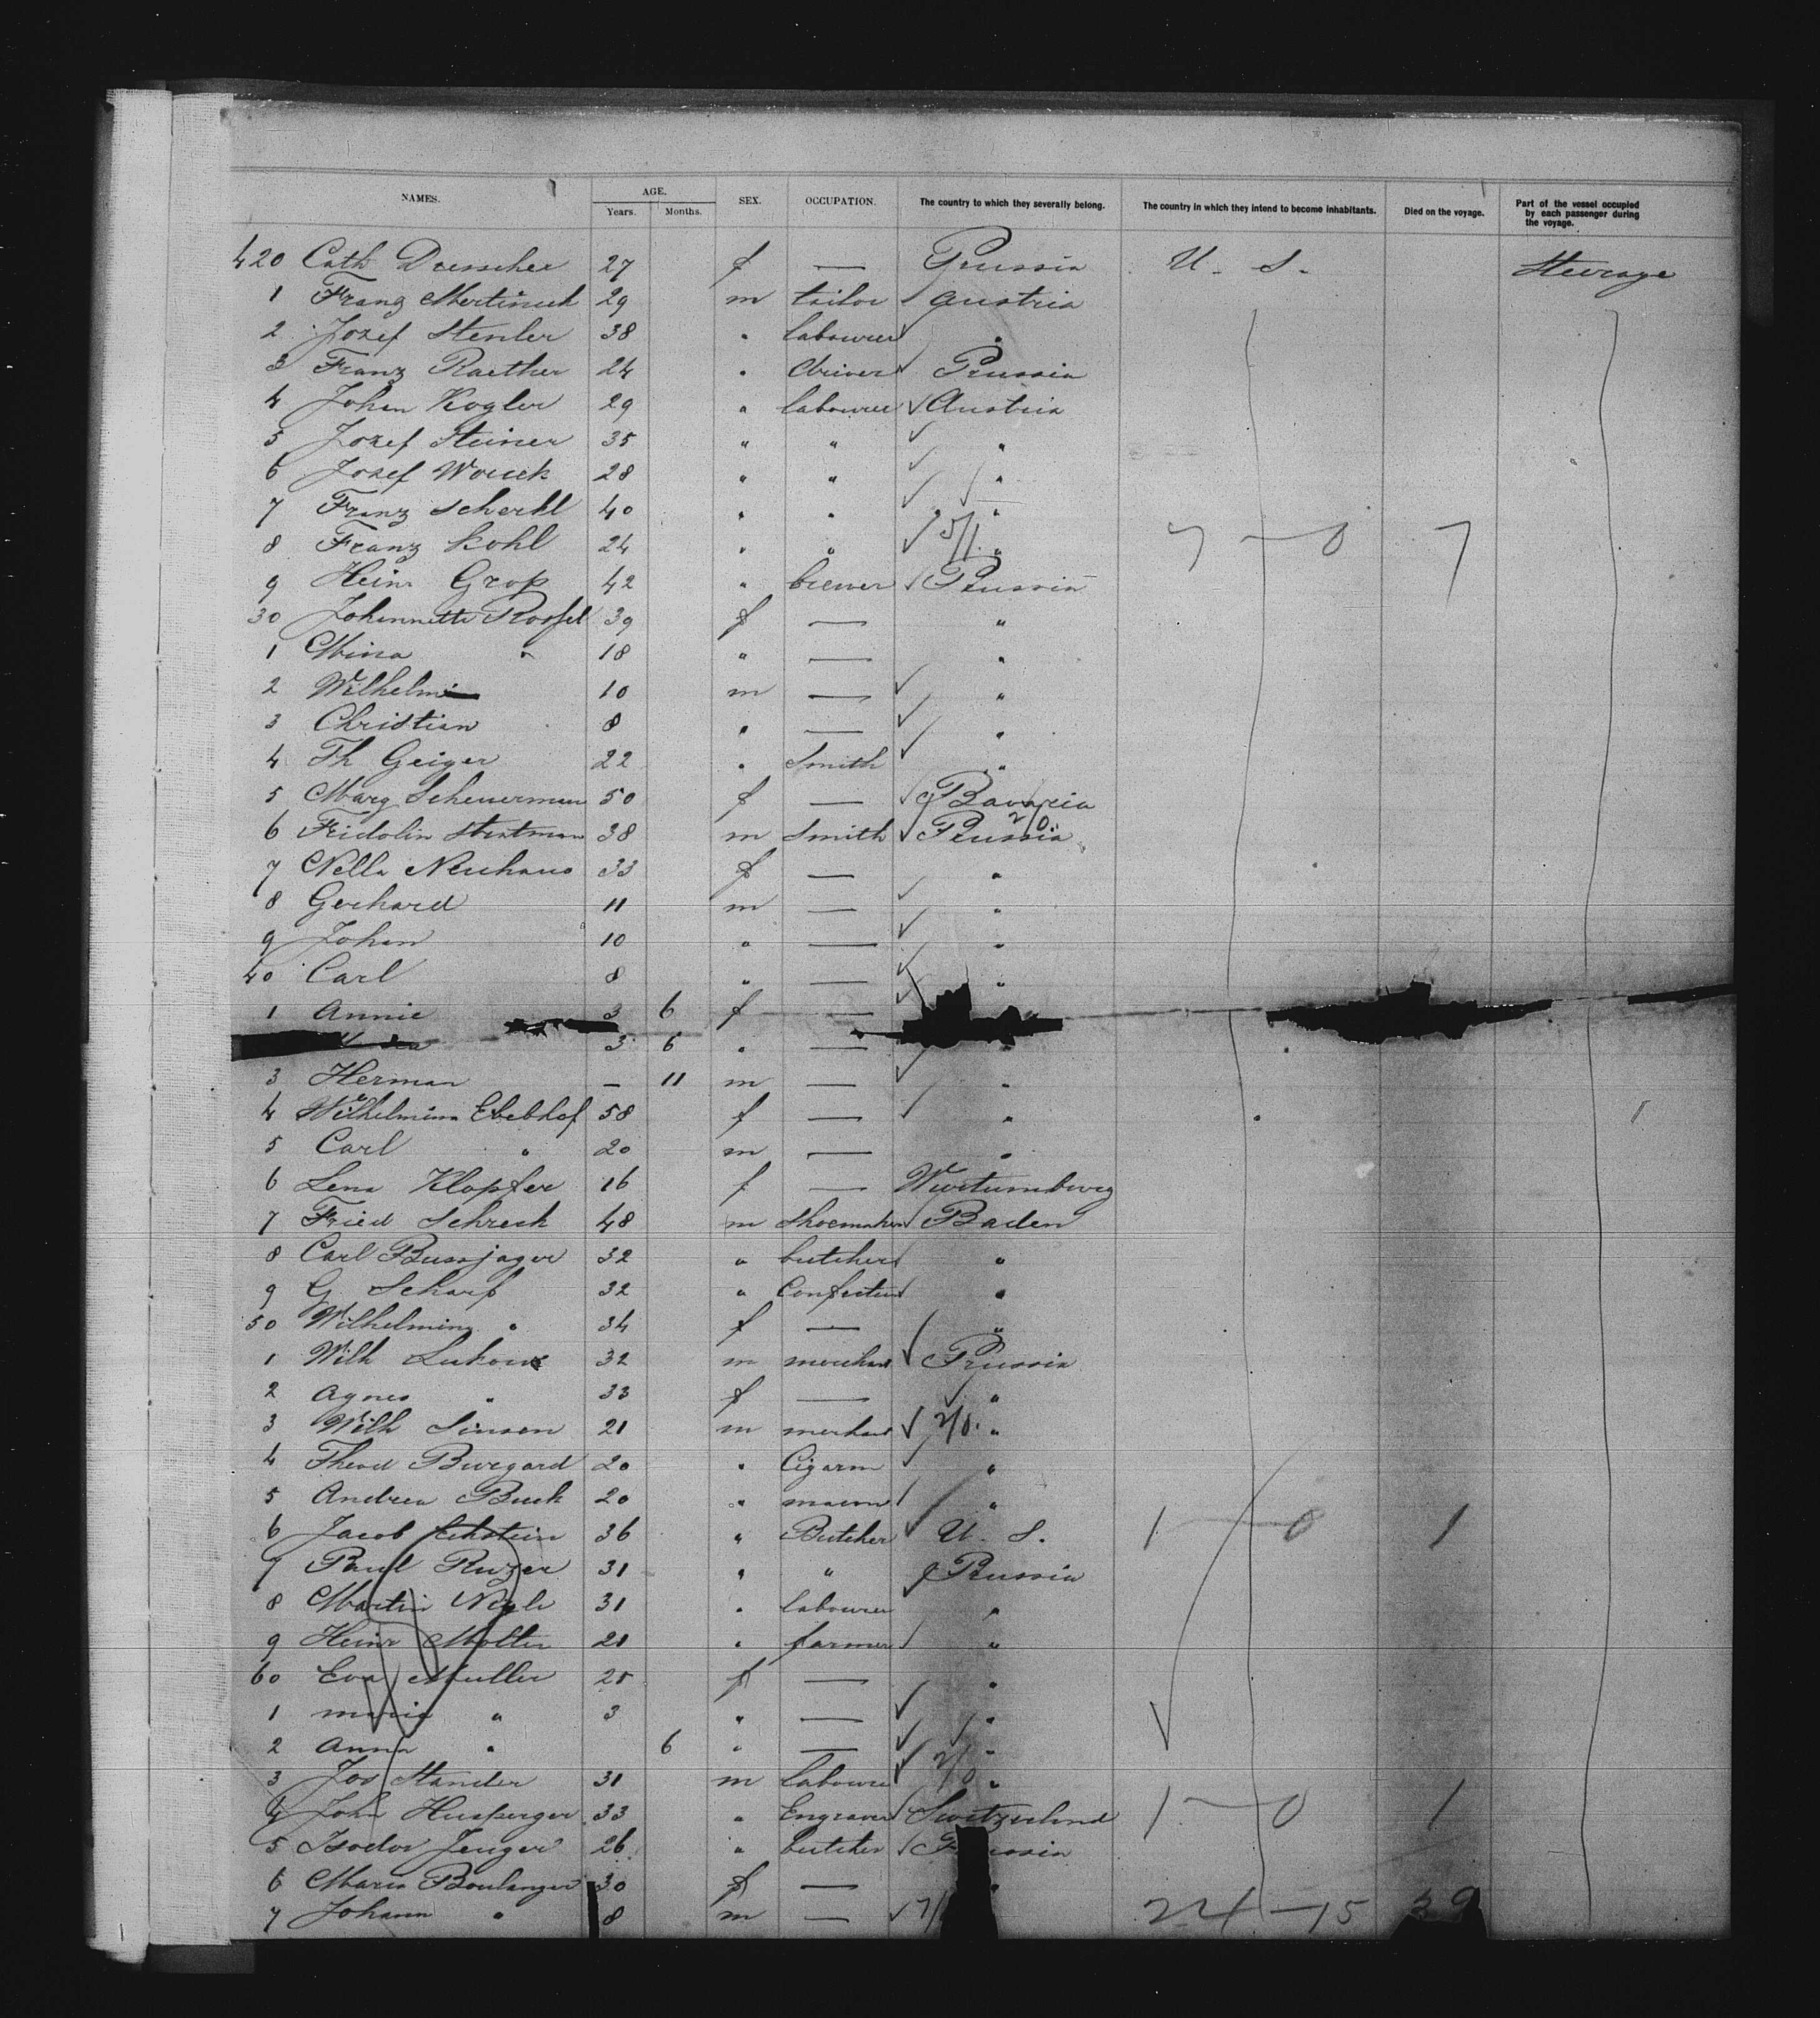 NAMES. AGE. Years. Months. SEX. OCCUPATION. The country to which they severally belong. The country in which they intend to become inhabitants. Died on the voyage. Part of the vessel occupied by each passenger during the voyage.
420 Cath Drescher 27 f — Prussia U. S. Steerage
1 Franz Mertineck 29 m tailor Austria
2 Josef Stenler 38 " labourer "
3 Franz Raether 24 " driver Prussia
4 Johan Kogler 29 " labourer Austria
5 Josef Steiner 35 " " "
6 Josef 28 " " "
7 Franz Scherhl 40 " " "
8 Franz Kohl 24 " " " 7 — 0 7
9 Heinr Grop 42 " brewer Prussia
30 Johannette Roossel 39 f — "
1 Mina " 18 " — "
2 Wilhelm 10 m — "
3 Christian 8 " — "
4 Th Geiger 22 " Smith "
5 Marg Scheuerman 50 f — Bavaria
6 Fridolin Stratman 38 m Smith Prussia 2/0
7 Nella Neuhaus 33 f — "
8 Gerhard 11 m — "
9 Johan 10 " — "
40 Carl 8 " — "
1 Annie 3 6 f —
3 6 " — "
3 Herman — 11 m — "
4 Wilhelmina Ebebhof 58 f — "
5 Carl " 20 m — "
6 Lena Klopfer 16 f — Wurtumburg
7 Fried Schreck 48 m Shoemaker Baden
8 Carl Bussjager 32 " butcher "
9 G. Scharf 32 " Confection "
50 Wilhelmina " 34 f — "
1 Wilh Lukow 32 m merchant Prussia
2 Agnes " 33 f — "
3 Wilh Sinsen 21 m merchant 2/0. "
4 Theod Burgard 20 " Cigarm "
5 Andrea Buck 20 " mason "
6 Jacob Eckstein 36 " Butcher U. S. 1 — 0 1
7 Paul Ruzer 31 " " Prussia
8 Martin 31 " labourer "
9 Heinr Molter 21 " farmer "
60 Eva Muller 25 f — "
1 maria " 3 " — "
2 Anna " 6 " — "
3 Jos Stander 31 m laboure 2/0 "
4 John Husperger 33 " Engraver Switzerland 1 — 0 1
5 Isodor Jenger 26 " butcher Prussia
6 Maria Boulanger 30 f — "
7 Johann " 8 m — 24 — 15 39